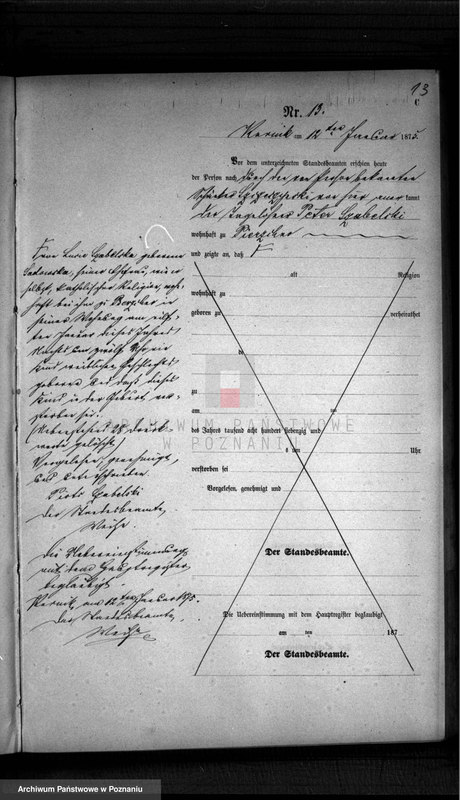 13
C
Nr. 13.
Kurnik am 12 ten Januar 1875.
Vor dem unterzeichneten Standesbeamten erschien heute
der Person nach, durch den von Person bekannten
von hier an= kannt
der Tagelöhner Peter Szabelski
wohnhaft zu
und zeigte an, daß
alt Religion
wohnhaft zu
geboren zu verheirathet
de
zu
am
des Jahres tausend acht hundert siebenzig und
um Uhr
verstorben sei
Vorgelesen, genehmigt und
Der Standesbeamte.
Die Uebereinstimmung mit dem Hauptregister beglaubigt
am ten 187
Der Standesbeamte.
geborene
seiner Ehefrau, mit ihm
selbst, katholischer Religion, wohn=
haft bei ihm zu
seiner Wohnung am
ten Januar dieses Jahres
Nachts um zwölf Uhr ein
Kind weiblichen Geschlechts
geboren und daß dieses
Kind in der Geburt ver=
storben sei.
28 Druck=
worte gelöscht.
Vorgelesen, genehmigt,
und unterschrieben
Piotr Szabelski
Der Standesbeamte,
Weise
Die Uebereinstimmung
mit dem Hauptregister
beglaubigt.
Kurnik, am 12ten Januar 1875.
Der Standesbeamte,
Weise
ARCHIWUM PAŃSTWOWE
W POZNANIU
Archiwum Państwowe w Poznaniu